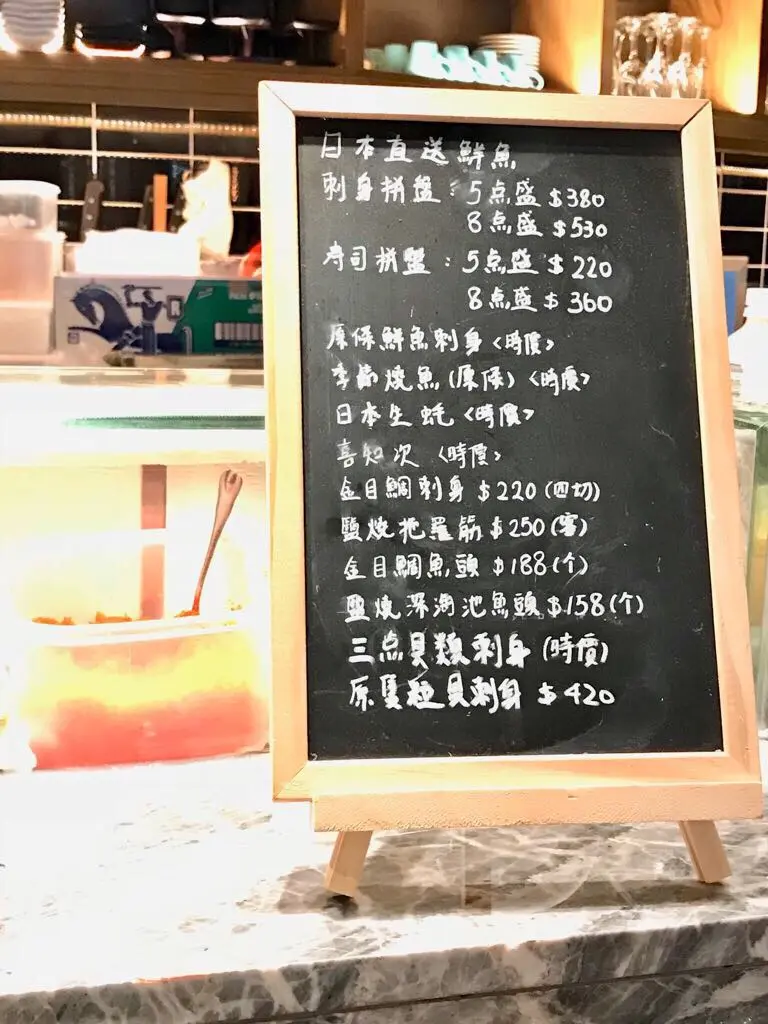 日本直送鮮魚
刺身拼盤:5点盛 $380
8点盛 $530
寿司拼盤:5点盛 $220
8点盛 $360
原條鮮魚刺身<時價>
季節燒魚(原條)<時價>
日本生蚝<時價>
喜知次<時價>
金目鯛刺身 $220(四切)
鹽燒把羅筋 $250(客)
金目鯛魚頭 $188(个)
鹽燒深海池魚頭 $158(个)
三点貝類刺身(時價)
原隻粒貝刺身 $420